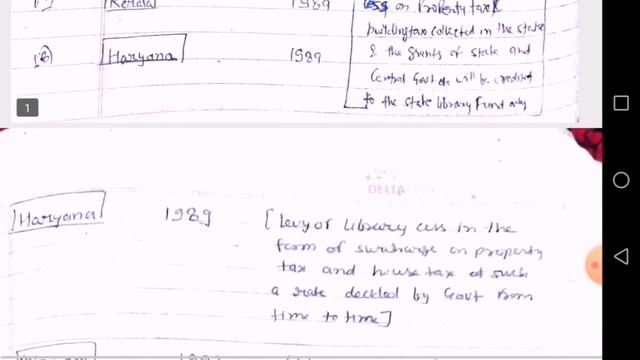 Kerala 1989 cess on Property tax &
building tax collected in the state
Haryana 1989 & the grants of state and
Central Govt will be credited
to the state library Fund only
1
Haryana 1989 [levy of library cess in the
form of surcharge on property
tax and house tax at such
a rate decided by Govt from
time to time]